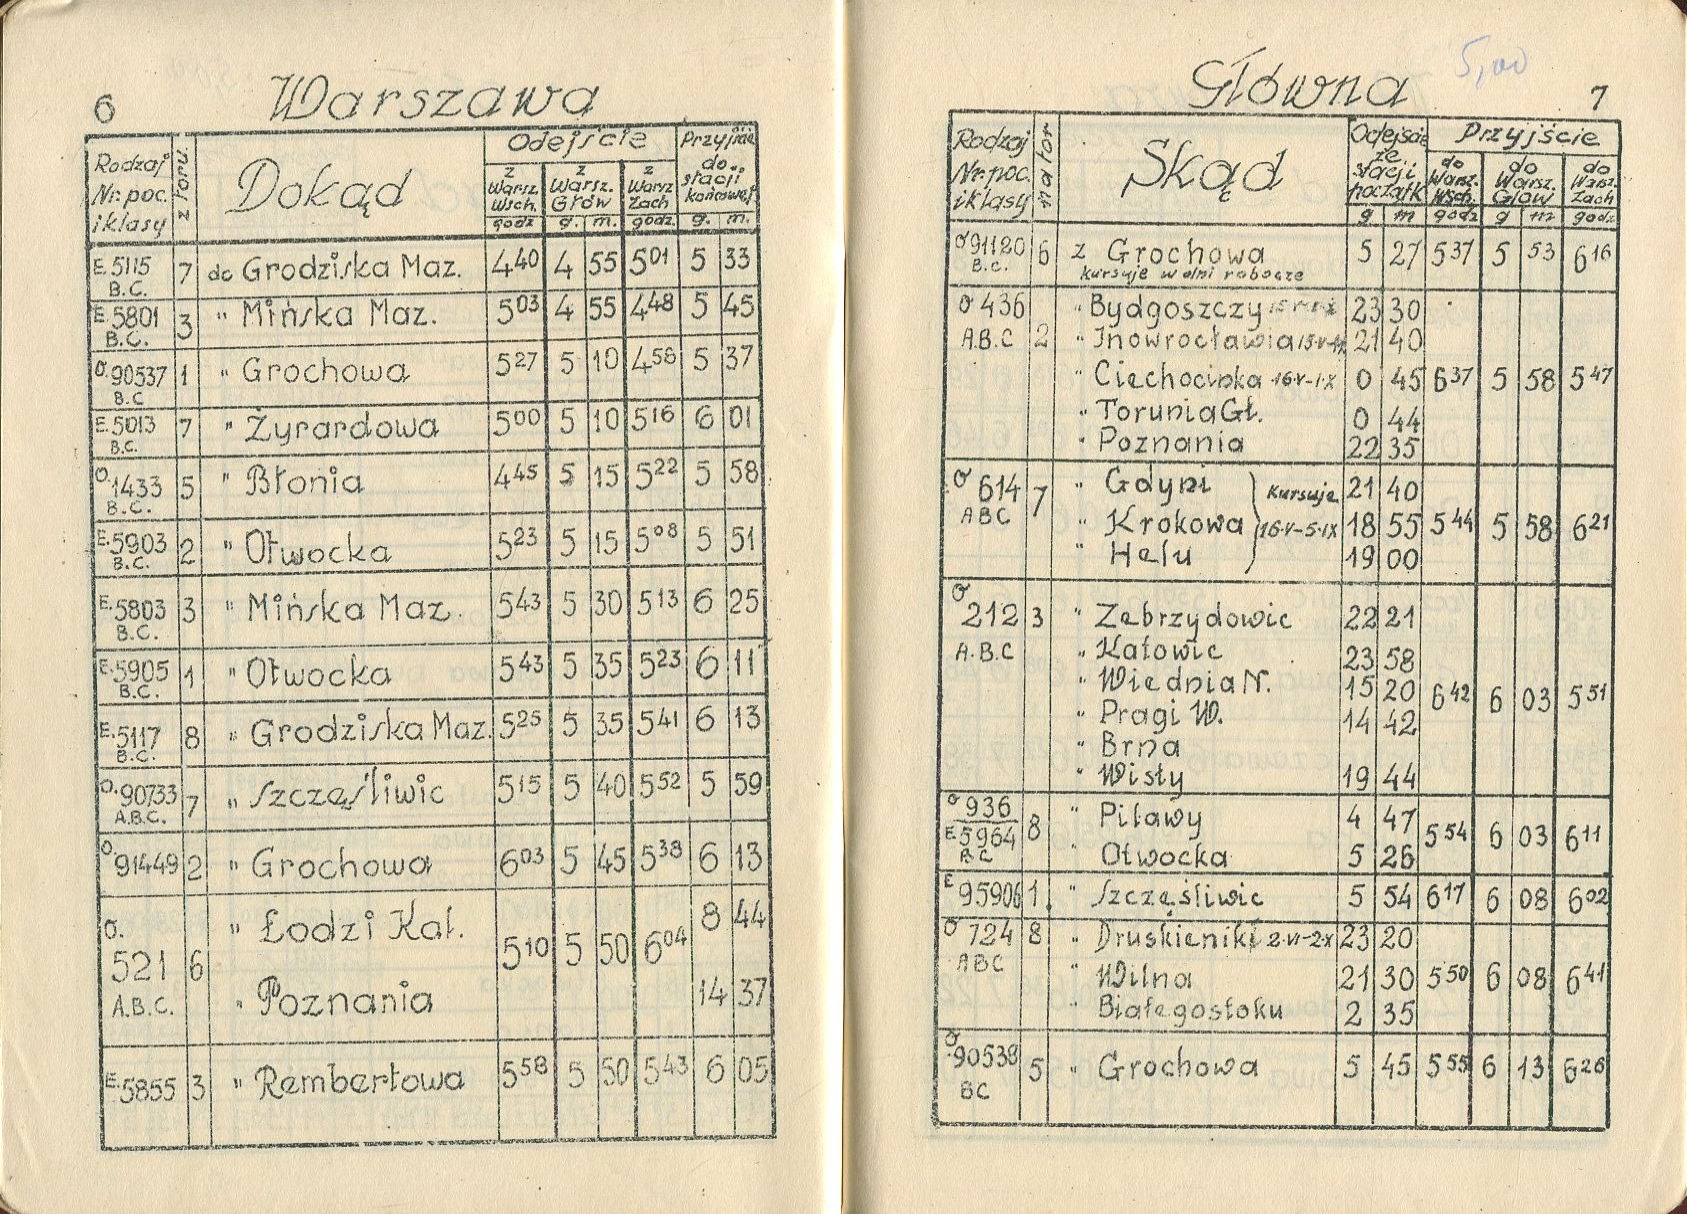 6 Warszawa
Rodzaj Nr. poc. i klasy
z toru.
Dokąd
Odejście
z Warsz. Wsch. godz
z Warsz. Głów g. m.
z Warsz Zach godz.
Przyjście do stacji końcowej g. m.
E. 5115 B.C. 7 do Grodziska Maz. 4 40 4 55 5 01 5 33
E. 5801 B.C. 3 " Mińska Maz. 5 03 4 55 4 48 5 45
O. 90537 B.C 1 " Grochowa 5 27 5 10 4 58 5 37
E. 5013 B.C. 7 " Żyrardowa 5 00 5 10 5 16 6 01
O. 1433 B.C. 5 " Błonia 4 45 5 15 5 22 5 58
E. 5903 B.C. 2 " Otwocka 5 23 5 15 5 08 5 51
E. 5803 B.C. 3 " Mińska Maz. 5 43 5 30 5 13 6 25
E. 5905 B.C. 1 " Otwocka 5 43 5 35 5 23 6 11
E. 5117 B.C. 8 " Grodziska Maz. 5 25 5 35 5 41 6 13
O. 90733 A.B.C. 7 " Szczęśliwic 5 15 5 40 5 52 5 59
O. 91449 2 " Grochowa 6 03 5 45 5 38 6 13
O. 521 A.B.C. 6 " Łodzi Kal. 5 10 5 50 6 04 8 44
" Poznania 14 37
E. 5855 3 " Rembertowa 5 58 5 50 5 43 6 05
Główna 5,00 7
Rodzaj Nr. poc. i klasy
na tor
Skąd
Odejście ze stacji początk g m
Przyjście
do Warsz. Wsch. godz
do Warsz. Głow g m
do Warsz. Zach godz
O 91120 B.C. 6 z Grochowa 5 27 5 37 5 53 6 16
kursuje w dni robocze
O 436 A.B.C 2 " Bydgoszczy 23 30
" Inowrocławia 21 40
" Ciechocinka 16·V-1·IX 0 45 6 37 5 58 5 47
" Torunia Gł. 0 44
" Poznania 22 35
O 614 ABC 7 " Gdyni 21 40
" Krokowa 18 55 5 44 5 58 6 21
" Helu 19 00
Kursuje 16·V-5·IX
O 212 A·B·C 3 " Zebrzydowic 22 21
" Katowic 23 58
" Wiednia N. 15 20 6 42 6 03 5 51
" Pragi W. 14 42
" Brna
" Wisły 19 44
O 936 8 " Pilawy 4 47 5 54 6 03 6 11
E 5964 BC " Otwocka 5 26
E 95906 1. " Szczęśliwic 5 54 6 17 6 08 6 02
O 724 ABC 8 " Druskieniki 2·VI-2·X 23 20
" Wilna 21 30 5 50 6 08 6 41
" Białegostoku 2 35
O 90538 BC 5 " Grochowa 5 45 5 55 6 13 6 26